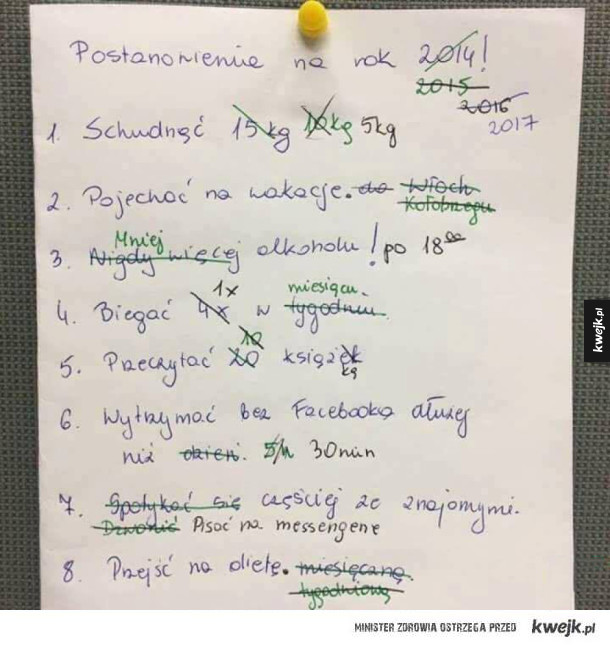 Postanowienia na rok 2014!
2015
2016
2017
1. Schudnąć 15kg 10kg 5kg
2. Pojechać na wakacje. do Włoch
Kołobrzegu
Mniej
3. Nigdy więcej alkoholu! po 18⁰⁰
1x miesiącu.
4. Biegać 4x w tygodniu.
10
5. Przeczytać 20 książek
kę
6. Wytrzymać bez Facebooka dłużej
niż dzień. 5h 30min
7. Spotykać się częściej ze znajomymi.
Dzwonić Pisać na messengerze
8. Przejść na dietę. miesięczną.
tygodniową
kwejk.pl
MINISTER ZDROWIA OSTRZEGA PRZED kwejk.pl